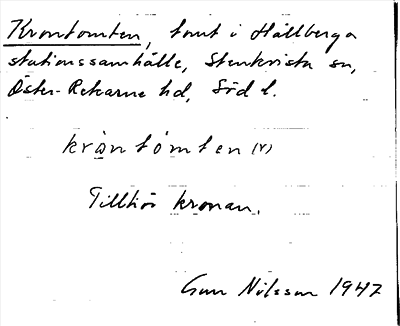 Krontomten, tomt i Hållberga
stationssamhälle, Stenkvista sn,
Öster-Rekarne hd, Söd l.
kròntómten (r)
Tillhör kronan.
Gun Nilsson 1947